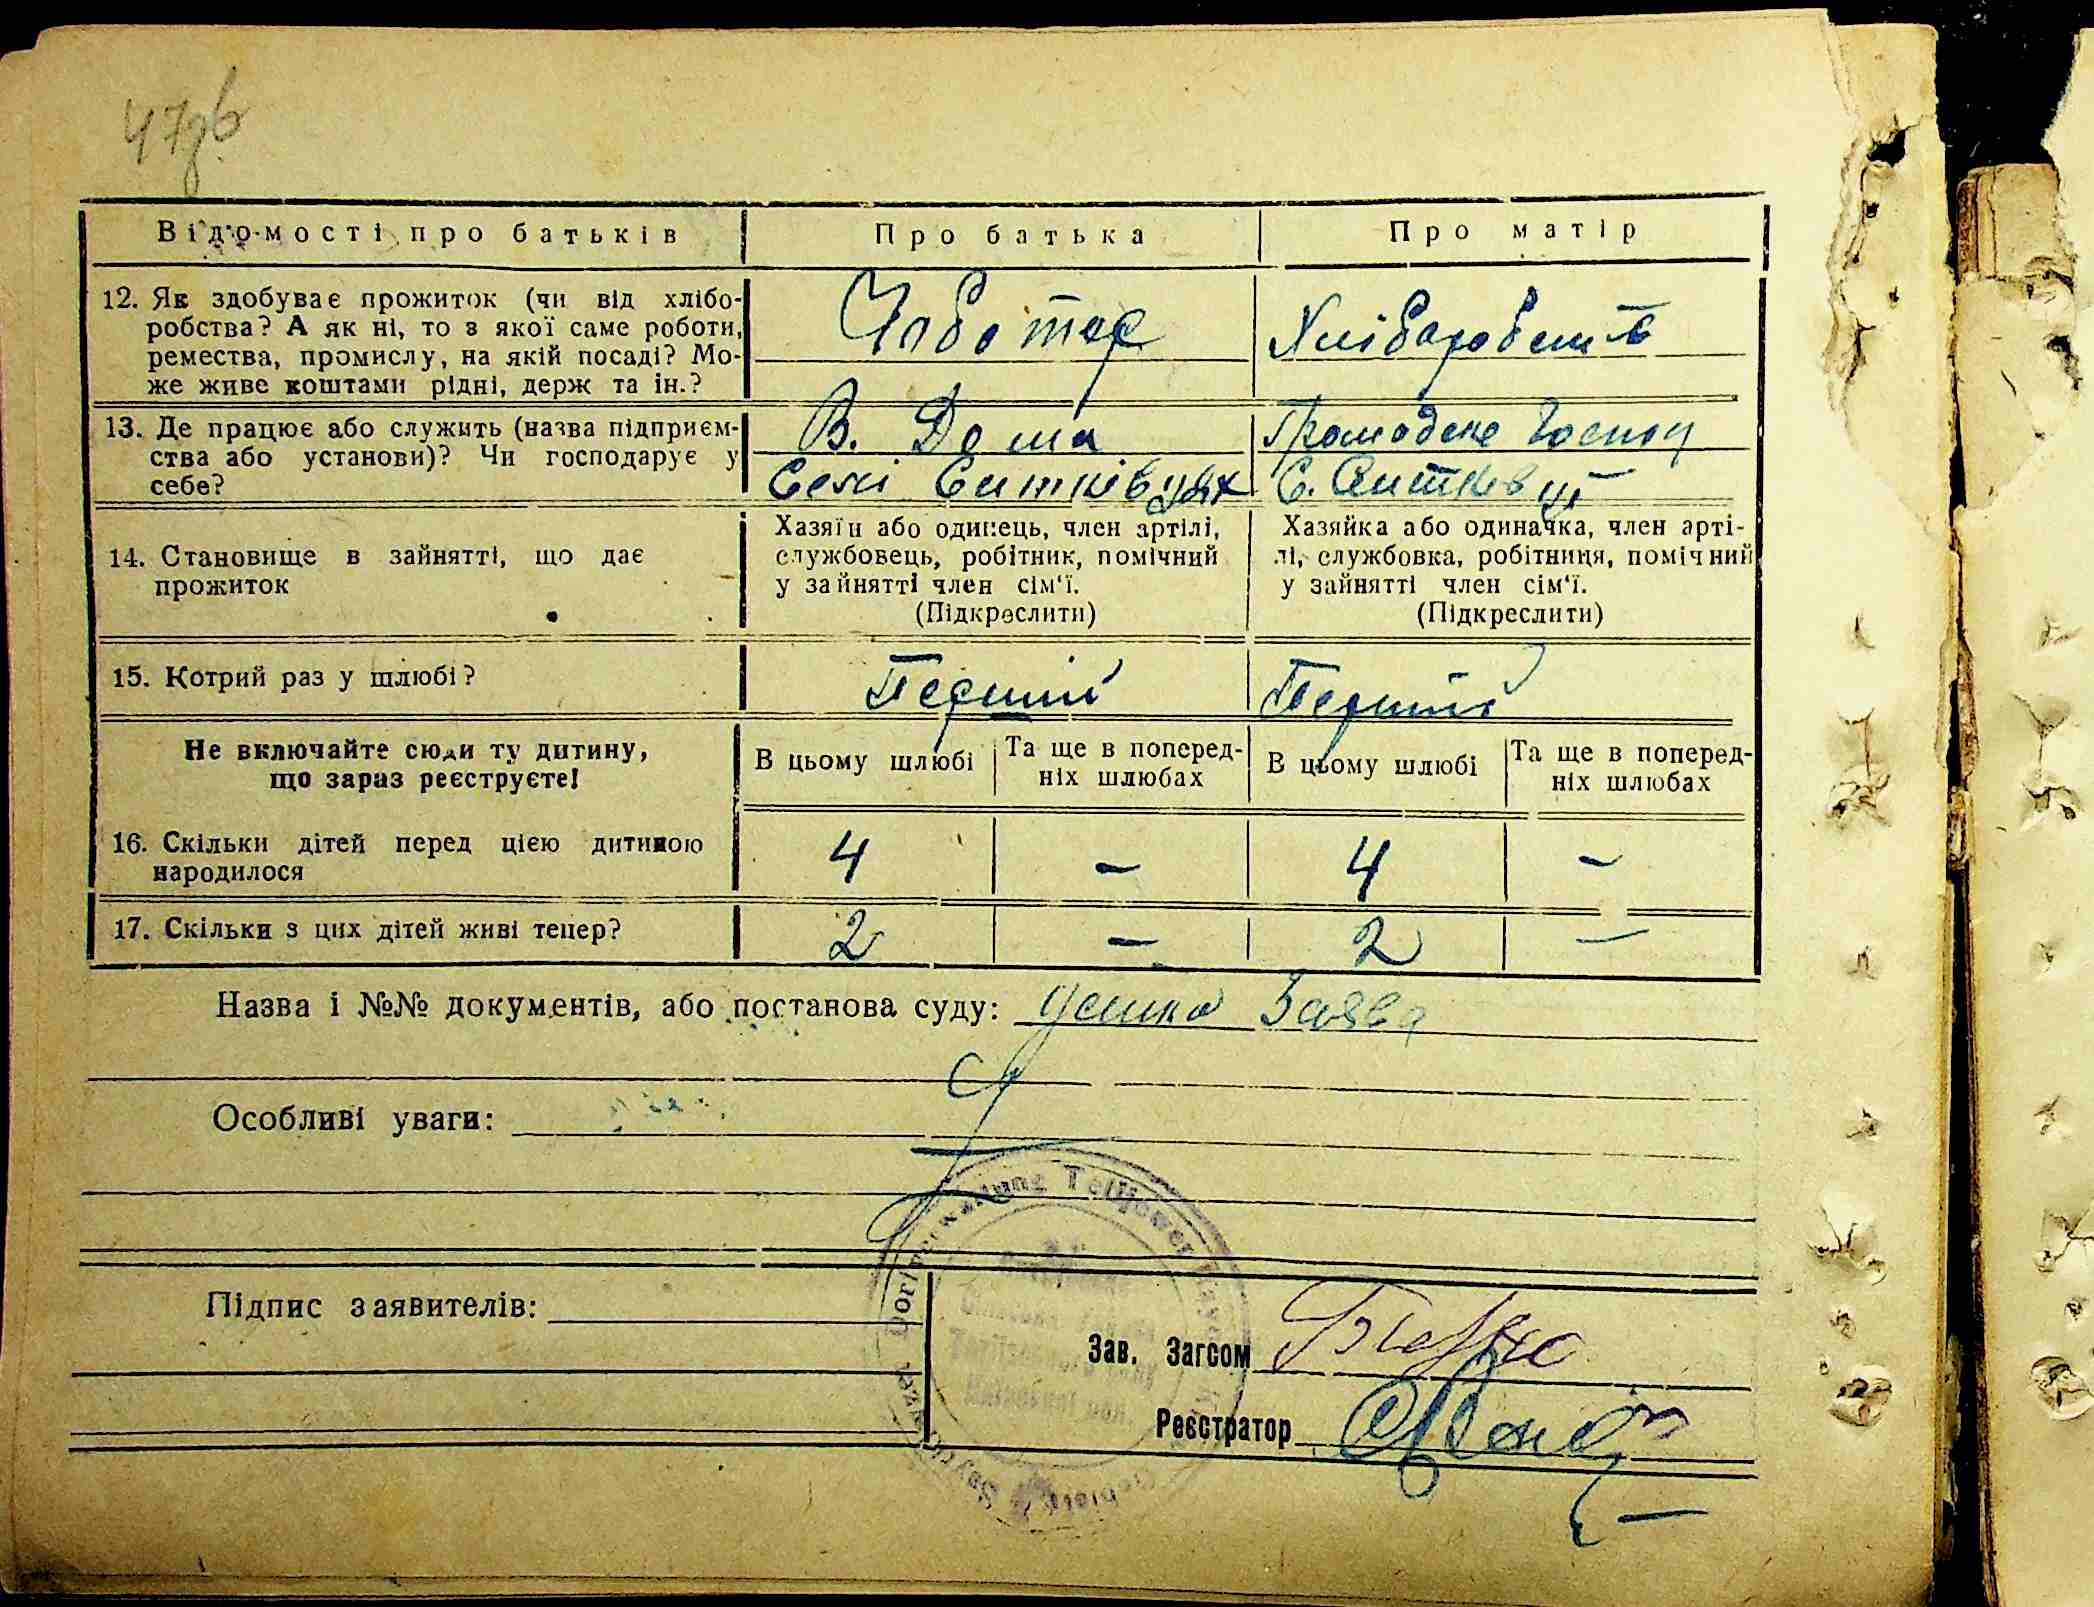 47зв
Відомості про батьків
Про батька
Про матір
12. Як здобуває прожиток (чи від хлібо-
робства? А як ні, то з якої саме роботи,
ремества, промислу, на якій посаді? Мо-
же живе коштами рідні, держ та ін.?
Чоботар
Хлібаробств
13. Де працює або служить (назва підприєм-
ства або установи)? Чи господарує у
себе?
В. Дома
Селі Ситківцях
Громадске Господ
С. Ситківці
14. Становище в зайнятті, що дає
прожиток
Хазяїн або одинець, член артілі,
службовець, робітник, помічний
у зайнятті член сім'ї.
(Підкреслити)
Хазяйка або одиначка, член арті-
лі, службовка, робітниця, помічний
у зайнятті член сім'ї.
(Підкреслити)
15. Котрий раз у шлюбі?
Перший
Перший
Не включайте сюди ту дитину,
що зараз реєструєте!
В цьому шлюбі
Та ще в поперед-
ніх шлюбах
В цьому шлюбі
Та ще в поперед-
ніх шлюбах
16. Скільки дітей перед цією дитиною
народилося
4 – 4 –
17. Скільки з цих дітей живі тепер?
2 – 2 –
Назва і №№ документів, або постанова суду: Усна Заява
Особливі уваги:
Підпис заявителів:
Зав. Загсом
Реєстратор